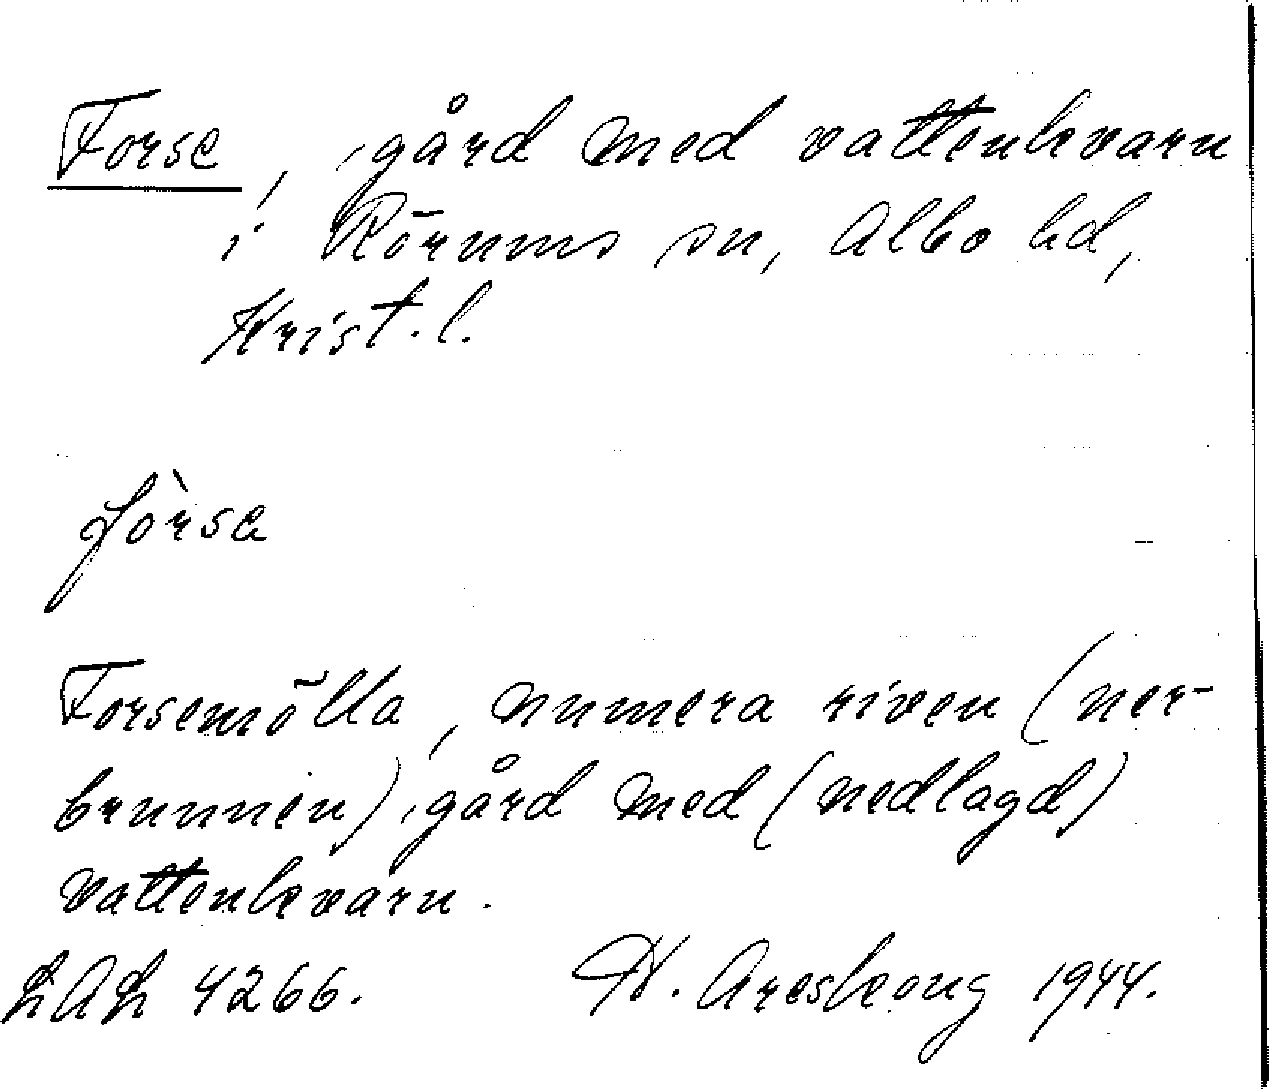 Forse, gård med vattenkvarn
i Rörums sn, Albo hd,
Krist. l.
fòrse
Forsemölla, numera riven (ner-
brunnen), gård med (nedlagd)
vattenkvarn.
LAL 4266. W. Areskoug 1944.